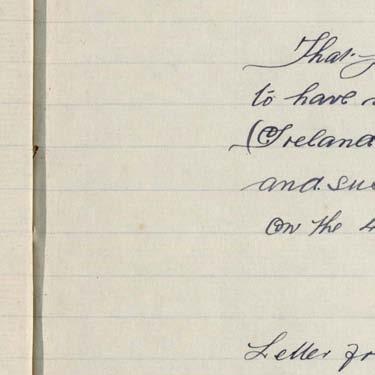 That
to have
(Ireland
and su
on the 4
Letter fr